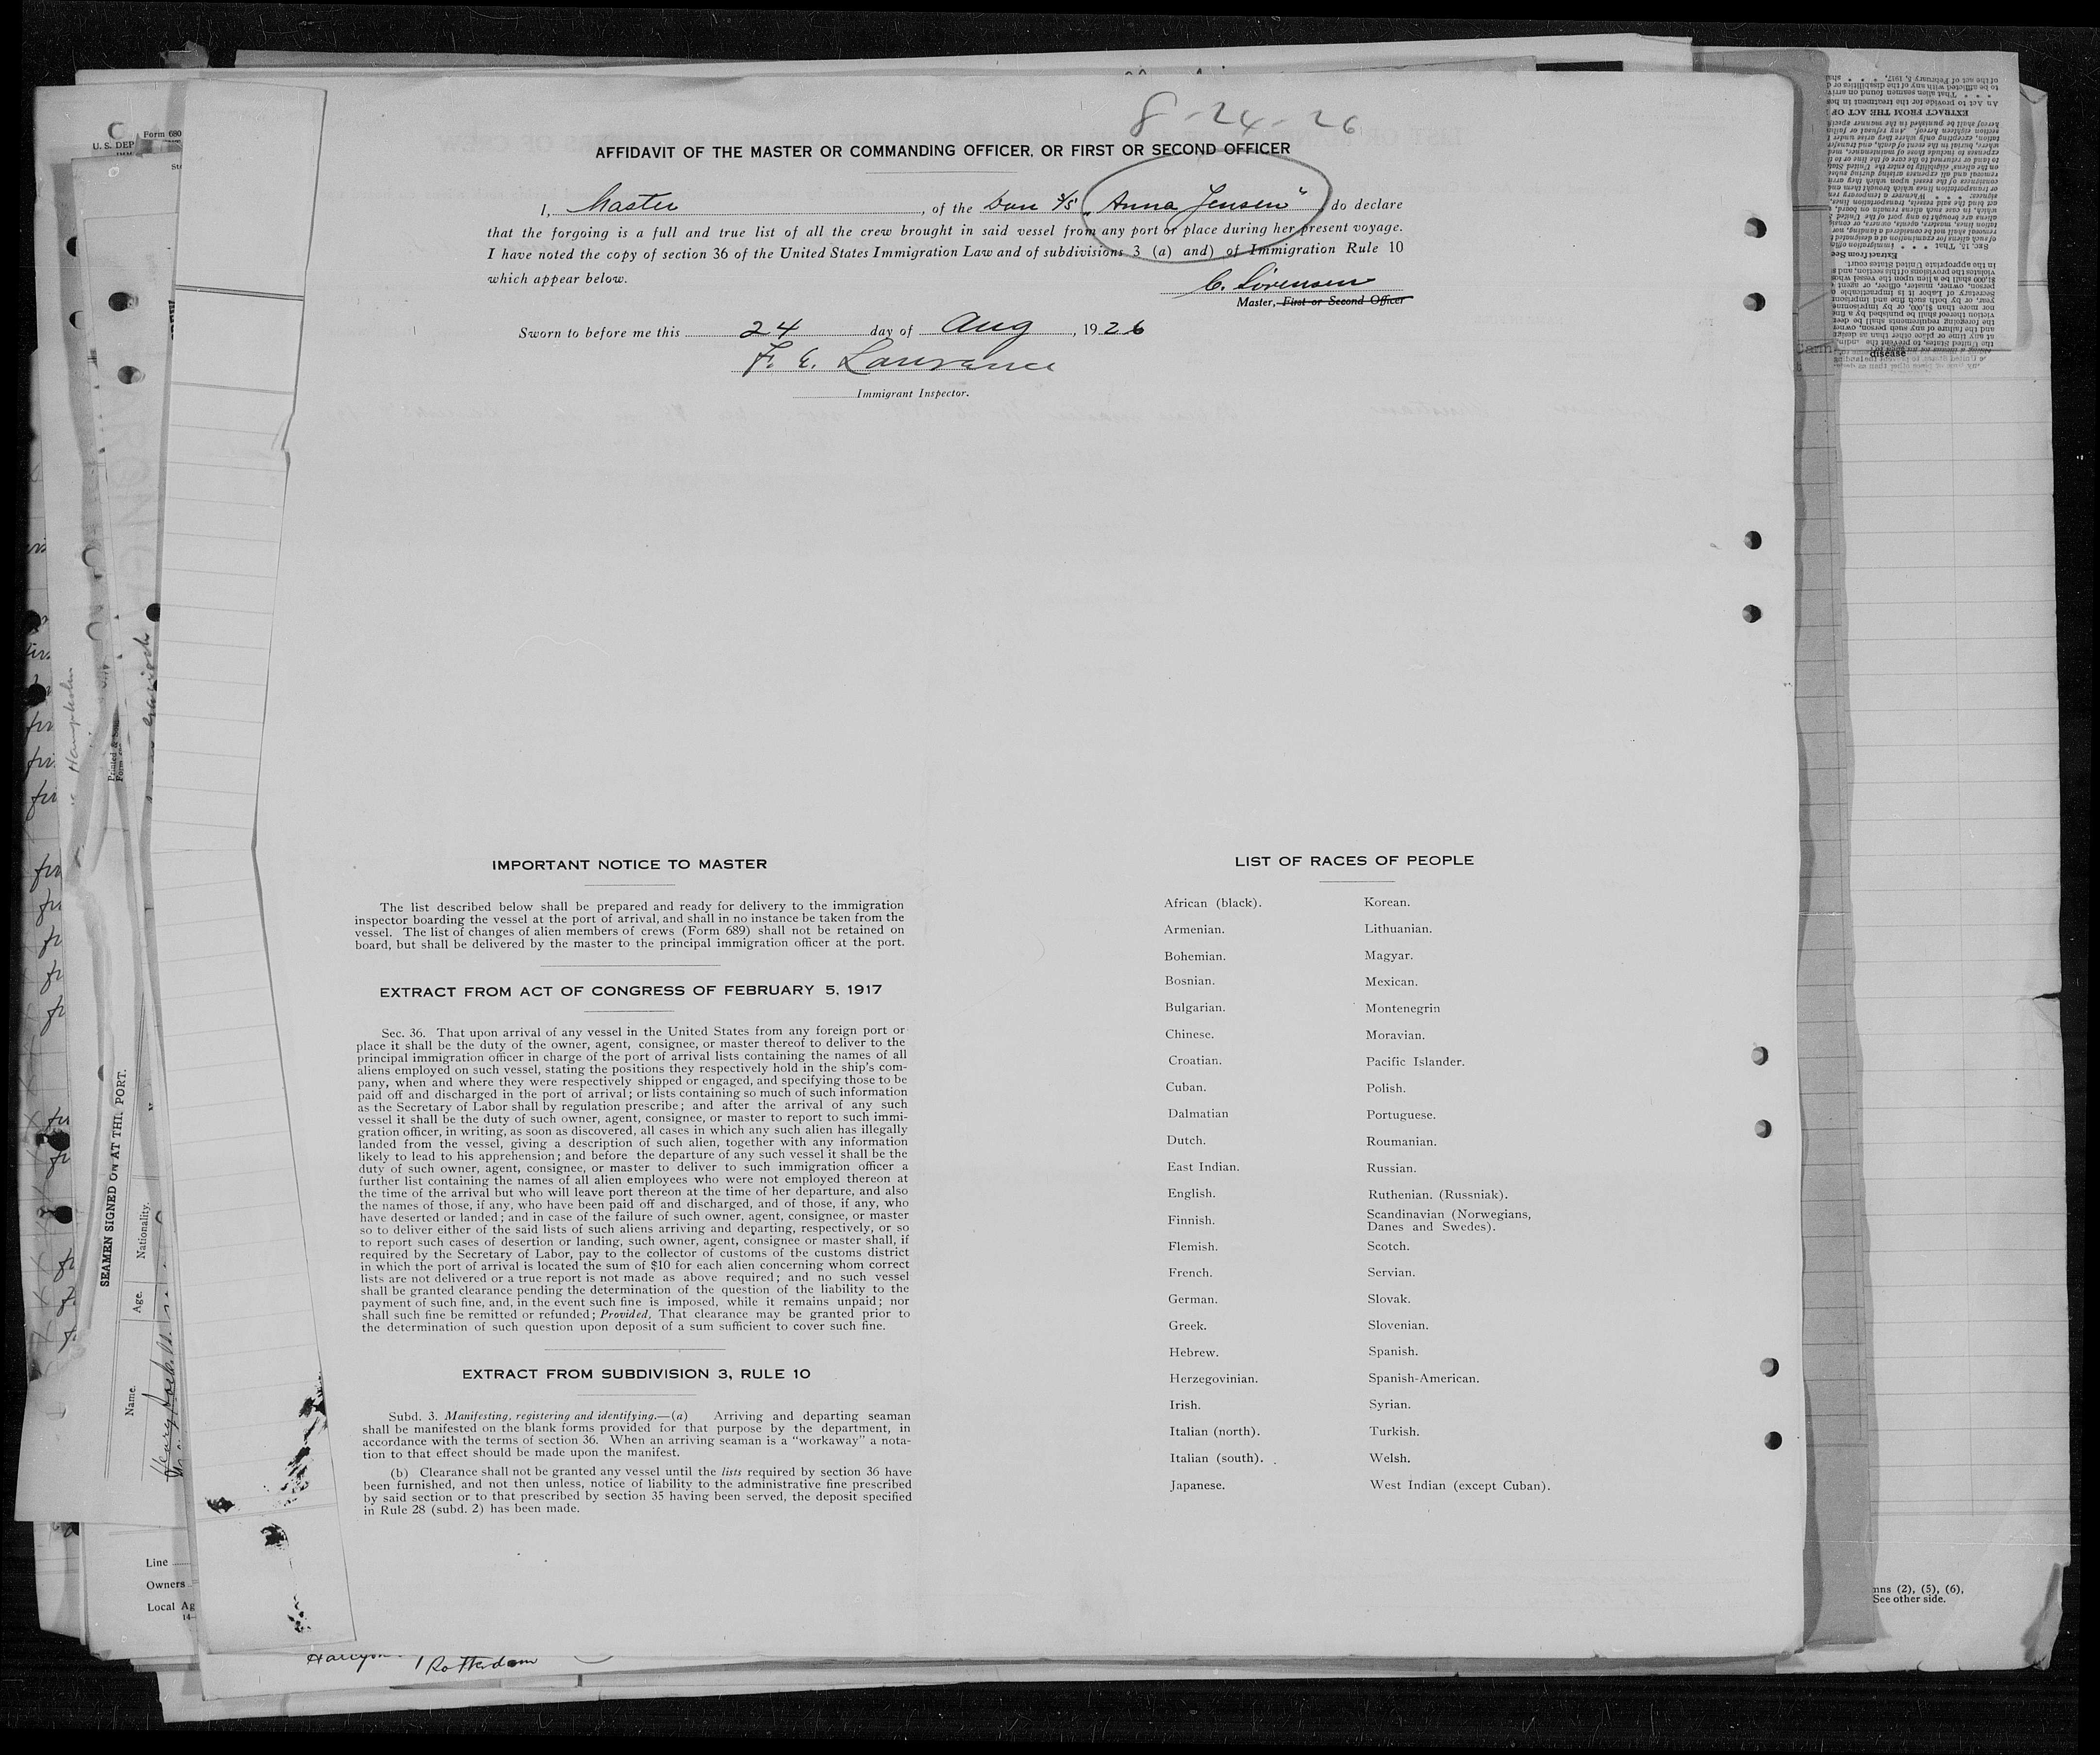 8-24-26
AFFIDAVIT OF THE MASTER OR COMMANDING OFFICER, OR FIRST OR SECOND OFFICER
I, Master, of the Dan S/S „Anna Jensen" do declare
that the forgoing is a full and true list of all the crew brought in said vessel from any port or place during her present voyage.
I have noted the copy of section 36 of the United States Immigration Law and of subdivisions 3 (a) and) of Immigration Rule 10
which appear below.
C. Sörensen
Master, First or Second Officer
Sworn to before me this 24 day of Aug, 1926
F. E. Lawrance
Immigrant Inspector.
IMPORTANT NOTICE TO MASTER
The list described below shall be prepared and ready for delivery to the immigration
inspector boarding the vessel at the port of arrival, and shall in no instance be taken from the
vessel. The list of changes of alien members of crews (Form 689) shall not be retained on
board, but shall be delivered by the master to the principal immigration officer at the port.
EXTRACT FROM ACT OF CONGRESS OF FEBRUARY 5, 1917
Sec. 36. That upon arrival of any vessel in the United States from any foreign port or
place it shall be the duty of the owner, agent, consignee, or master thereof to deliver to the
principal immigration officer in charge of the port of arrival lists containing the names of all
aliens employed on such vessel, stating the positions they respectively hold in the ship's com-
pany, when and where they were respectively shipped or engaged, and specifying those to be
paid off and discharged in the port of arrival; or lists containing so much of such information
as the Secretary of Labor shall by regulation prescribe; and after the arrival of any such
vessel it shall be the duty of such owner, agent, consignee, or master to report to such immi-
gration officer, in writing, as soon as discovered, all cases in which any such alien has illegally
landed from the vessel, giving a description of such alien, together with any information
likely to lead to his apprehension; and before the departure of any such vessel it shall be the
duty of such owner, agent, consignee, or master to deliver to such immigration officer a
further list containing the names of all alien employees who were not employed thereon at
the time of the arrival but who will leave port thereon at the time of her departure, and also
the names of those, if any, who have been paid off and discharged, and of those, if any, who
have deserted or landed; and in case of the failure of such owner, agent, consignee, or master
so to deliver either of the said lists of such aliens arriving and departing, respectively, or so
to report such cases of desertion or landing, such owner, agent, consignee or master shall, if
required by the Secretary of Labor, pay to the collector of customs of the customs district
in which the port of arrival is located the sum of $10 for each alien concerning whom correct
lists are not delivered or a true report is not made as above required; and no such vessel
shall be granted clearance pending the determination of the question of the liability to the
payment of such fine, and, in the event such fine is imposed, while it remains unpaid; nor
shall such fine be remitted or refunded; Provided, That clearance may be granted prior to
the determination of such question upon deposit of a sum sufficient to cover such fine.
EXTRACT FROM SUBDIVISION 3, RULE 10
Subd. 3. Manifesting, registering and identifying.—(a) Arriving and departing seaman
shall be manifested on the blank forms provided for that purpose by the department, in
accordance with the terms of section 36. When an arriving seaman is a "workaway" a nota-
tion to that effect should be made upon the manifest.
(b) Clearance shall not be granted any vessel until the lists required by section 36 have
been furnished, and not then unless, notice of liability to the administrative fine prescribed
by said section or to that prescribed by section 35 having been served, the deposit specified
in Rule 28 (subd. 2) has been made.
LIST OF RACES OF PEOPLE
African (black).
Armenian.
Bohemian.
Bosnian.
Bulgarian.
Chinese.
Croatian.
Cuban.
Dalmatian
Dutch.
East Indian.
English.
Finnish.
Flemish.
French.
German.
Greek.
Hebrew.
Herzegovinian.
Irish.
Italian (north).
Italian (south).
Japanese.
Korean.
Lithuanian.
Magyar.
Mexican.
Montenegrin
Moravian.
Pacific Islander.
Polish.
Portuguese.
Roumanian.
Russian.
Ruthenian. (Russniak).
Scandinavian (Norwegians,
Danes and Swedes).
Scotch.
Servian.
Slovak.
Slovenian.
Spanish.
Spanish-American.
Syrian.
Turkish.
Welsh.
West Indian (except Cuban).
Form 680
U. S. DEP
SEAMEN SIGNED ON AT THIS PORT.
Name.
Age.
Nationality.
Line
Owners
Local Ag
14-
Rotterdam
disease
mns (2), (5), (6),
See other side.